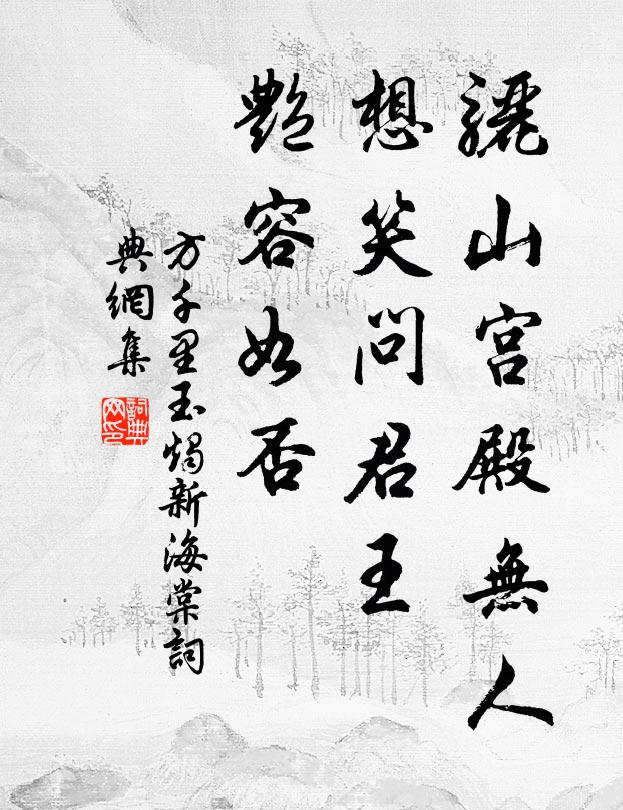 驪山宮殿無人
想笑問君王
艷容如否
方千里玉燭新海棠詞
典網集
詞典
网印